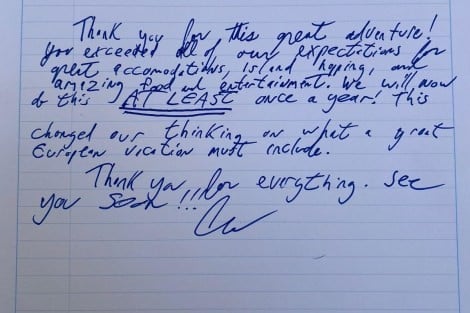 Thank you for this great adventure!
you exceeded all of our expectations for
great accomodations, island hopping, and
amazing food and entertainment. We will now
do this AT LEAST once a year! This
changed our thinking on what a great
European vacation must include.
Thank you for everything. See
you soon!!!